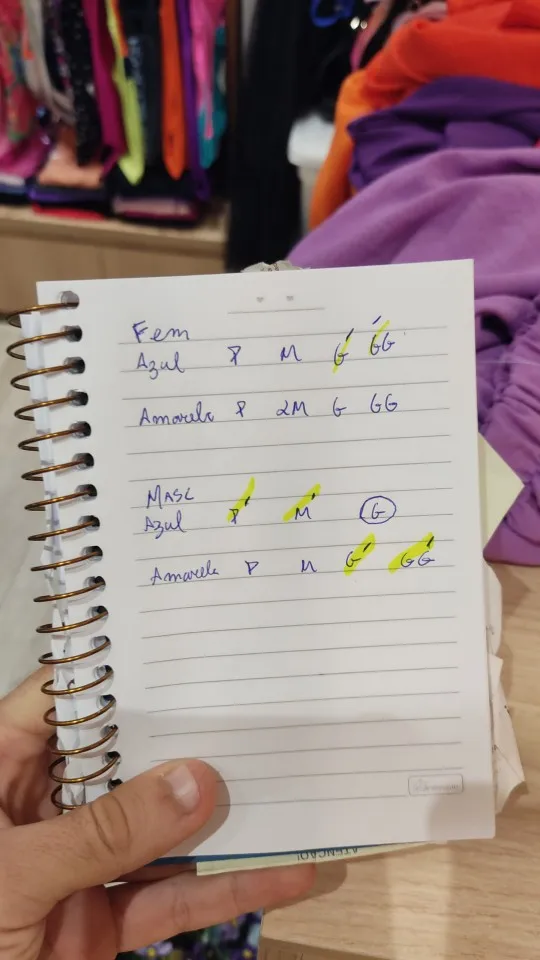 Fem
Azul P M G GG
Amarelo P 2M G GG
MASC
Azul P M G
Amarelo P M G GG
ATENÇÃO!